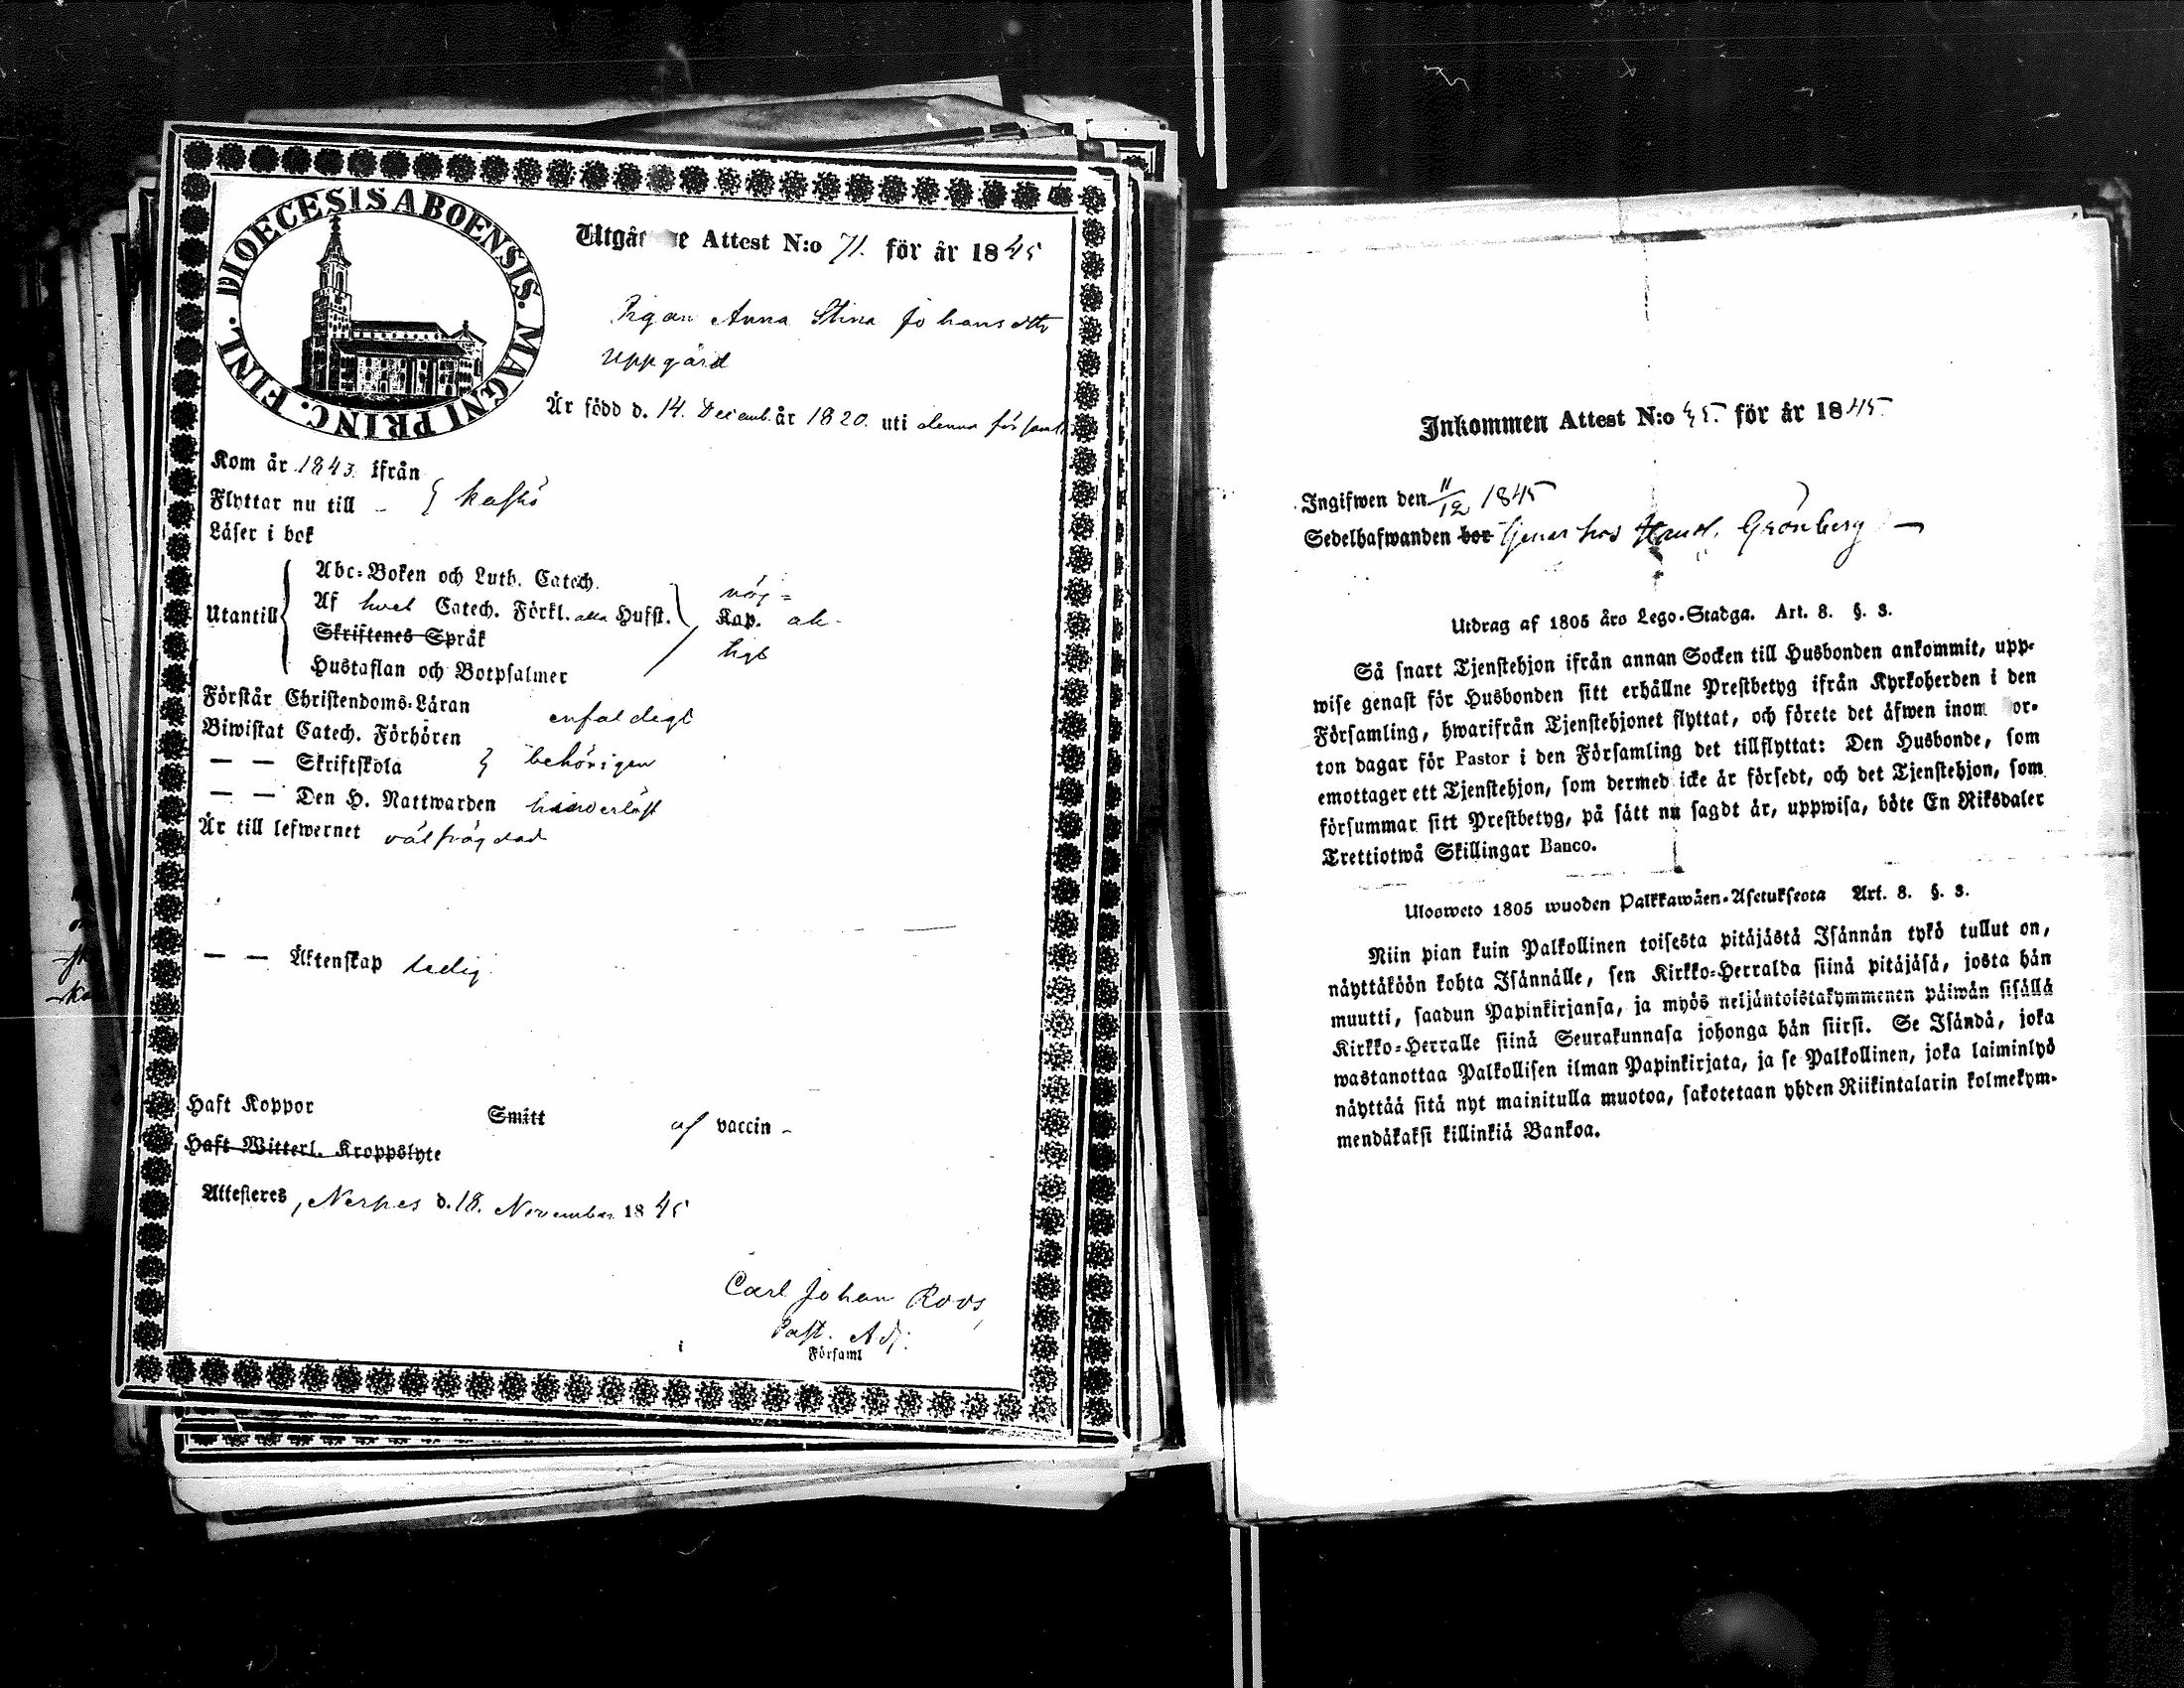 DIOECESIS ABOENSIS. MAGNI PRINC. FINL.
Utgå e Attest N:o 71. för år 1845
Pigan Anna Stina Johansdttr
Uppgård
Är född d. 14. Decemb. år 1820. uti denna församl
Kom år 1843 ifrån
Flyttar nu till - } Kaskö
Läser i bok
Utantill
Abc-Boken och Luth. Catech.
Af hvel Catech. Förkl. alla Husst. Kap.
Skriftenes Språk
Hustaflan och Botpsalmer
Förstår Christendoms-Läran enfaldigt
Biwistat Catech. Förhören
— — Skriftskola } behörigen
— — Den H. Nattwarden hinderlöst
Är till lefwernet välfrägdad
— — Äktenskap ledig.
Haft Koppor Smitt af vaccin -
Haft Witterl. Kroppslyte
Attesteres, Nerpes d. 18. November 1845
Carl Johan Roos,
Past. Adj.
Församl
Inkommen Attest N:o 45. för år 1845
Ingifwen den 11/12 1845
Sedelhafwanden bor tjenar hos Handl. Grönberg —
Utdrag af 1805 års Lego-Stadga. Art. 8. §. 3.
Så snart Tjenstehjon ifrån annan Socken till Husbonden ankommit, upp-
wise genast för Husbonden sitt erhållne Prestbetyg ifrån Kyrkoherden i den
Församling, hwarifrån Tjenstehjonet flyttat, och förete det äfwen inom or-
ton dagar för Pastor i den Församling det tillflyttat: Den Husbonde, som
emottager ett Tjenstehjon, som dermed icke är försedt, och det Tjenstehjon, som
försummar sitt Prestbetyg, på sätt nu sagdt är, uppwisa, böte En Riksdaler
Trettiotwå Skillingar Banco.
Ulosweto 1805 wuoden Palkkawäen-Asetuksesta Art. 8. §. 3.
Niin pian kuin Palkollinen toisesta pitäjästä Isännän tykö tullut on,
näyttäköön kohta Isännälle, sen Kirkko-Herralda siinä pitäjäsä, josta hän
muutti, saadun Papinkirjansa, ja myös neljäntoistakymmenen päiwän sisällä
Kirkko-Herralle siinä Seurakunnasa johonga hän siirsi. Se Isändä, joka
wastanottaa Palkollisen ilman Papinkirjata, ja se Palkollinen, joka laiminlyö
näyttää sitä nyt mainitulla muotoa, sakotetaan yhden Riikintalarin kolmekym-
mendäkaksi killinkiä Bankoa.